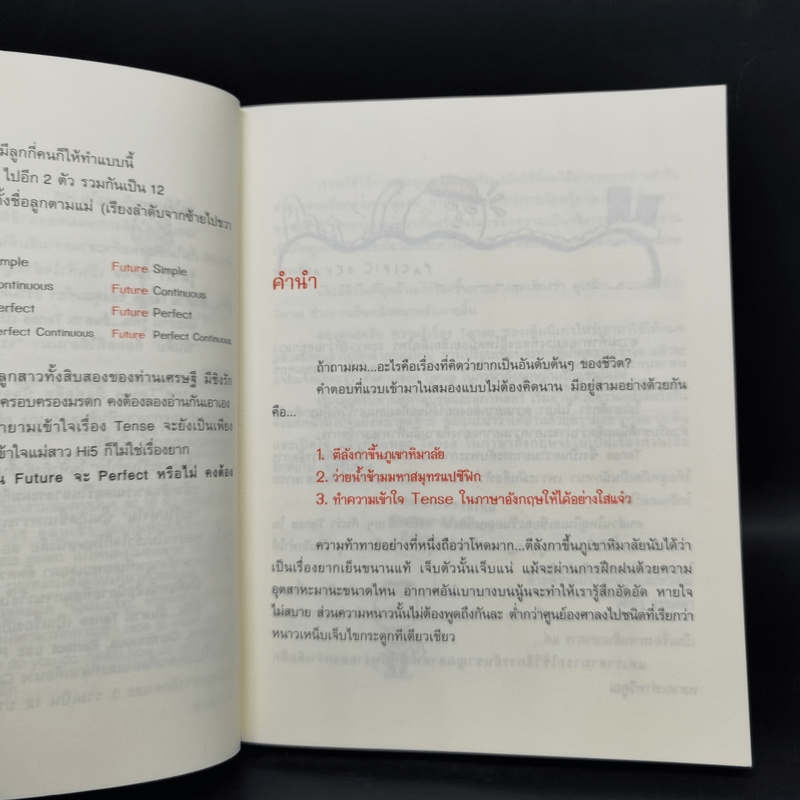 มีลูกกี่คนก็ให้ทำแบบนี้
ไปอีก 2 ตัว รวมกันเป็น 12
ตั้งชื่อลูกตามแม่ (เรียงลำดับจากซ้ายไปขวา
imple Future Simple
ontinuous Future Continuous
erfect Future Perfect
erfect Continuous Future Perfect Continuous
ลูกสาวทั้งสิบสองของท่านเศรษฐี มีชิงรัก
ครอบครองมรดก คงต้องลองอ่านกันเอาเอง
ายามเข้าใจเรื่อง Tense จะยังเป็นเพียง
ข้าใจแม่สาว Hi5 ก็ไม่ใช่เรื่องยาก
น Future จะ Perfect หรือไม่ คงต้อง
คำนำ
ถ้าถามผม...อะไรคือเรื่องที่คิดว่ายากเป็นอันดับต้นๆ ของชีวิต?
คำตอบที่แวบเข้ามาในสมองแบบไม่ต้องคิดนาน มีอยู่สามอย่างด้วยกัน
คือ...
1. ตีลังกาขึ้นภูเขาหิมาลัย
2. ว่ายน้ำข้ามมหาสมุทรแปซิฟิก
3. ทำความเข้าใจ Tense ในภาษาอังกฤษให้ได้อย่างใสแจ๋ว
ความท้าทายอย่างที่หนึ่งถือว่าโหดมาก...ตีลังกาขึ้นภูเขาหิมาลัยนับได้ว่า
เป็นเรื่องยากเย็นขนานแท้ เจ็บตัวนั้นเจ็บแน่ แม้จะผ่านการฝึกฝนด้วยความ
อุตสาหะมานะขนาดไหน อากาศอันเบาบางบนนู้นจะทำให้เรารู้สึกอัดอัด หายใจ
ไม่สบาย ส่วนความหนาวนั้นไม่ต้องพูดถึงกันละ ต่ำกว่าศูนย์องศาลงไปชนิดที่เรียกว่า
หนาวเหน็บเจ็บไขกระดูกทีเดียวเชียว